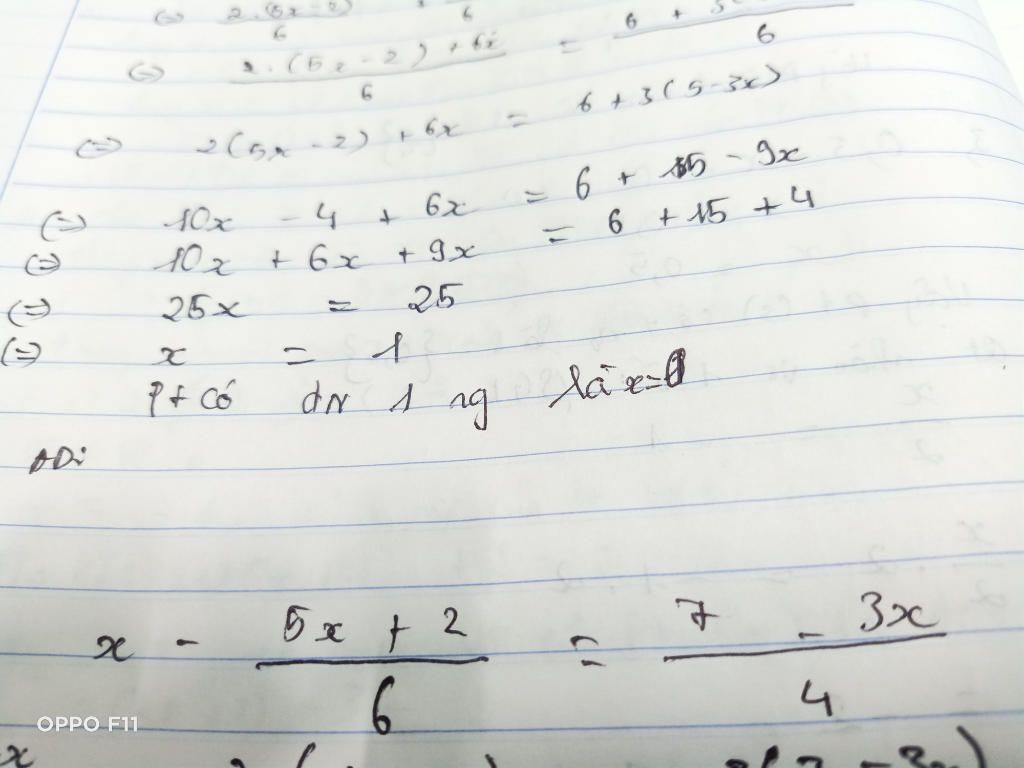 (=) 2.(5x-2) 6 6
(=) 2.(5x-2)+6x / 6 = 6 + / 6
(=) 2(5x-2)+6x = 6+3(5-3x)
(=) 10x - 4 + 6x = 6 + 15 - 9x
(=) 10x + 6x + 9x = 6 + 15 + 4
(=) 25x = 25
(=) x = 1
Pt có dn 1 ng là x=
AD:
x - 5x + 2 / 6 = 7 - 3x / 4
OPPO F11